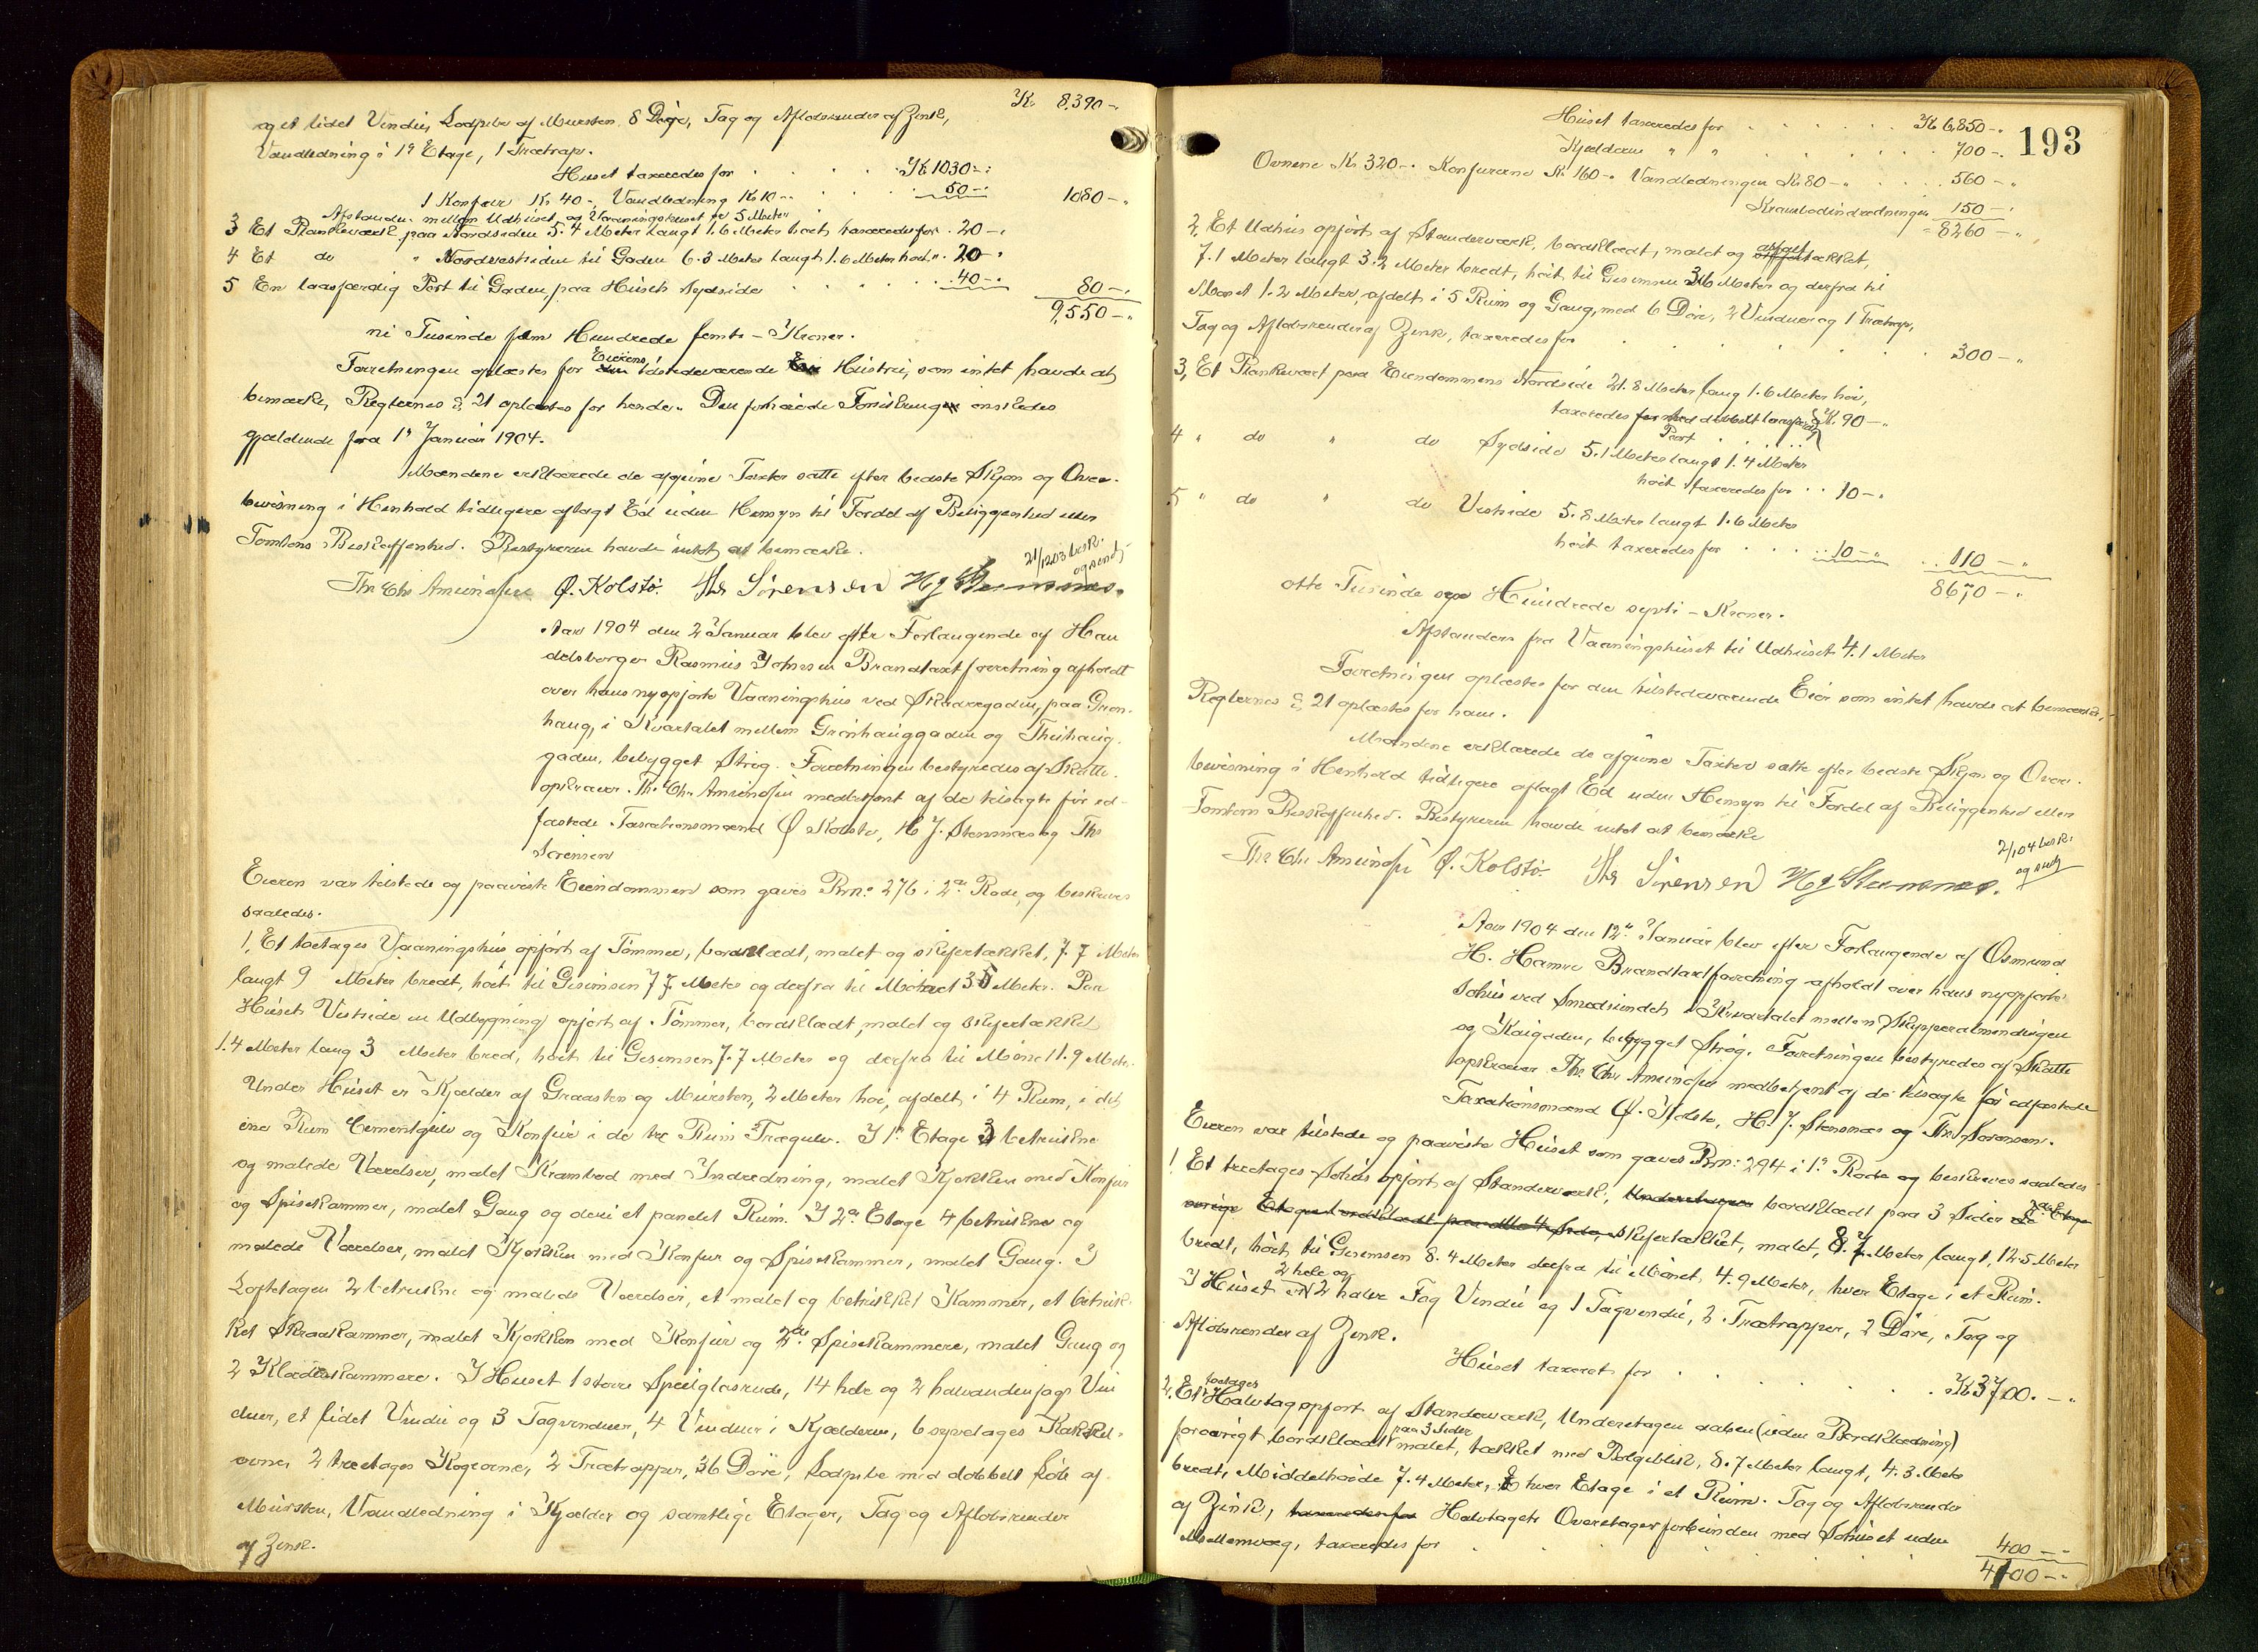 Kr. 8,390 -.
og et lidet Vindu, Lodpibe af Mursten, 8 Døre, Tag og Afløbsrender af Zink,
Vandledning i 1ª Etage, 1 Trætrap.
Huset taxeredes for . . . . Kr 1030 -.
1 Konfur Kr. 40 -, Vandledning Kr 10 -. . . 50 -. 1080 -.
Afstanden mellem Udhuset og Vaaningshuset er 5 Meter
3 Et Plankeværk paa Nordsiden 5.4 Meter langt 1.6 Meter høit taxeredes for . 20 -.
4 Et do " Nordvestsiden til Gaden 6.3 Meter langt 1.6 Meter høit " . 20 -.
5 En laasfærdig Port til Gaden, paa Husets Sydside . . . . . 40 -. 80 -.
9,550 -.
ni Tusinde fem Hundrede femti - Kroner.
Forretningen oplæstes for Eierens tilstedeværende Hustru, som intet havde at
bemærke, Reglernes § 21 oplæstes for hende. Den forhøiede Forsikring ønskedes
gjældende fra 1' Januar 1904.
Mændene erklærede de afgivne Taxter satte efter bedste Skjøn og Over-
bevisning i Henhold tidligere aflagt Ed uden Hensyn til Fordel af Beliggenhed eller
Tomtens Beskaffenhed. Bestyreren havde intet at bemærke.
21/1203 besk.
og sendt
Ths Chr Amundsen Ø. Kolstø. Ths Sørensen H J Stensnæs.
Aar 1904 den 2' Januar blev efter Forlangende af Han
delsborger Rasmus Johnsen Brandtaxtforretning afholdt
over hans nyopførte Vaaningshus ved Skaaregaden, paa Grøn-
haug, i Kvartalet mellem Grønhauggaden og Thuhaug-
gaden, bebygget Strøg. Forretningen bestyredes af Skatte-
opkræver Ths. Chr. Amundsen medbetjent af de tilsagte før ed-
fæstede Taxationsmænd Ø Kolstø, H. J. Stensnæs og Ths
Sørensen
Eieren var tilstede og paaviste Eiendommen som gaves Brn: 276 i 2ª Rode, og beskrives
saaledes.
1, Et toetages Vaaningshus opført af Tømmer, bordklædt, malet og skifertækket, 7.7 Meter
langt 9 Meter bredt, høit til Gesimsen 7.7 Meter og derfra til Mønet 3.5 Meter. Paa
Husets Vestside en Udbygning opført af Tømmer, bordklædt, malet og skifertækket
1.4 Meter lang 3 Meter bred, høit til Gesimsen 7.7 Meter og derfra til Møne 11.9 Meter.
Under Huset er Kjælder af Graasten og Mursten, 2 Meter høi, afdelt i 4 Rum, i det
ene Rum Cementgulv og Konfur i de tre Rum Trægulv. I 1ª Etage 3 betrukne
og malede Værelser, malet Krambod med Indredning, malet Kjøkken med Konfur
og Spisekammer, malet Gang og deri et panelet Rum. I 2ª Etage 4 betrukne og
malede Værelser, malet Kjøkken med Konfur og Spisekammer, malet Gang. I
Loftetagen 2 betrukne og malede Værelser, et malet og betrukket Kammer, et betruk-
ket Skraakammer, malet Kjøkken med Konfur og 2de Spisekammere, malet Gang og
2 Klædeskammere. I Huset 1 større Speilglasrude, 14 hele og 2 halvandenfags Vin
duer, et lidet Vindu og 3 Tagvinduer, 4 Vinduer i Kjælderen, 6 syvetages Kakkel-
ovne, 2 treetages Kogeovne, 2 Trætrapper, 36 Døre, Lodpibe med dobbelt Løb af
Mursten, Vandledning i Kjælder og samtlige Etager, Tag og Afløbsrender
af Zink.
193
Huset taxeredes for . . . . . . Kr 6,850 -.
Kjælderen " " . . . . . . 700 -.
Ovnene Kr 320 -. Konfurerne Kr. 160 -. Vandledningen Kr. 80 -. . . . 560 -.
Krambodindredningen 150 -.
= 8260 -.
2, Et Udhus opført af Standerværk, bordklædt, malet og asfalttækket,
7.1 Meter langt 3.2 Meter bredt, høit til Gesimsen 3.6 Meter og derfra til
Mønet 1.2 Meter, afdelt i 5 Rum og Gang, med 6 Døre, 2 Vinduer og 1 Trætrap,
Tag og Afløbsrender af Zink, taxeredes for . . . . . . 300 -.
3, Et Plankeværk paa Eiendommens Nordside 21.8 Meter lang 1.6 Meter høi,
taxeredes for med dobbelt laasfærdig Kr. 90 -.
Port
4 " do " do Sydside 5.1 Meter langt 1.4 Meter
høit taxeredes for . . 10 -.
5 " do " do Vestside 5.8 Meter langt 1.6 Meter
høit taxeredes for . . . . 10 -. . . 110 -.
8670 -.
otte Tusinde sex Hundrede sytti - Kroner.
Afstanden fra Vaaningshuset til Udhuset 4.1 Meter
Forretningen oplæstes for den tilstedeværende Eier som intet havde at bemærke,
Reglernes § 21 oplæstes for ham.
Mændene erklærede de afgivne Taxter satte efter bedste Skjøn og Over-
bevisning i Henhold tidligere aflagt Ed uden Hensyn til Fordel af Beliggenhed eller
Tomtens Beskaffenhed. Bestyreren havde intet at bemærke
2/1 04 besk.
og sendt
Ths Chr Amundsen Ø. Kolstø. Ths Sørensen H J Stensnæs.
Aar 1904 den 12te Januar blev efter Forlangende af Osmund
H. Hamre Brandtaxtforretning afholdt over hans nyopførte
Søhus ved Smedsundet i Kvartalet mellem Skipperalmendingen
og Kaigaden, bebygget Strøg. Forretningen bestyredes af Skatte
opkræver Ths. Chr. Amundsen medbetjent af de tilsagte før edfæstede
Taxationsmænd Ø. Kolstø, H. J. Stensnæs og Ths Sørensen.
Eieren var tilstede og paaviste Huset som gaves Brn: 294 i 1ª Rode og beskrives saaledes
1 Et treetages Søhus opført af Standerværk, Underetagen bordklædt paa 3 Sider de 2de Etage
øvrige Etager bordklædt paa alle 4 Sider, skifertækket, malet, 8.7 Meter langt, 12.5 Meter
bredt, høit til Gesimsen 8.4 Meter derfra til Mønet 4.9 Meter, hver Etage i et Rum.
2 hele og
I Huset er 2 halve Fag Vindu og 1 Tagvindu, 2 Trætrapper, 2 Døre, Tag og
Afløbsrender af Zink.
Huset taxeret for . . . . . . Kr 3700. -.
toetages
2, Et Halvtag opført af Standerværk, Underetagen aaben (uden Bordklædning)
forøvrigt bordklædt paa 3 Sider malet, tækket med Bølgeblik, 8.7 Meter langt, 4.3 Meter
bredt, Middelhøide 7.4 Meter, hver Etage i et Rum. Tag og Afløbsrender
af Zink, taxeredes for Halvtagets Overetager forbunden med Søhuset uden
Mellemvæg, taxeredes for . . . . . . 400 -.
4100 -.